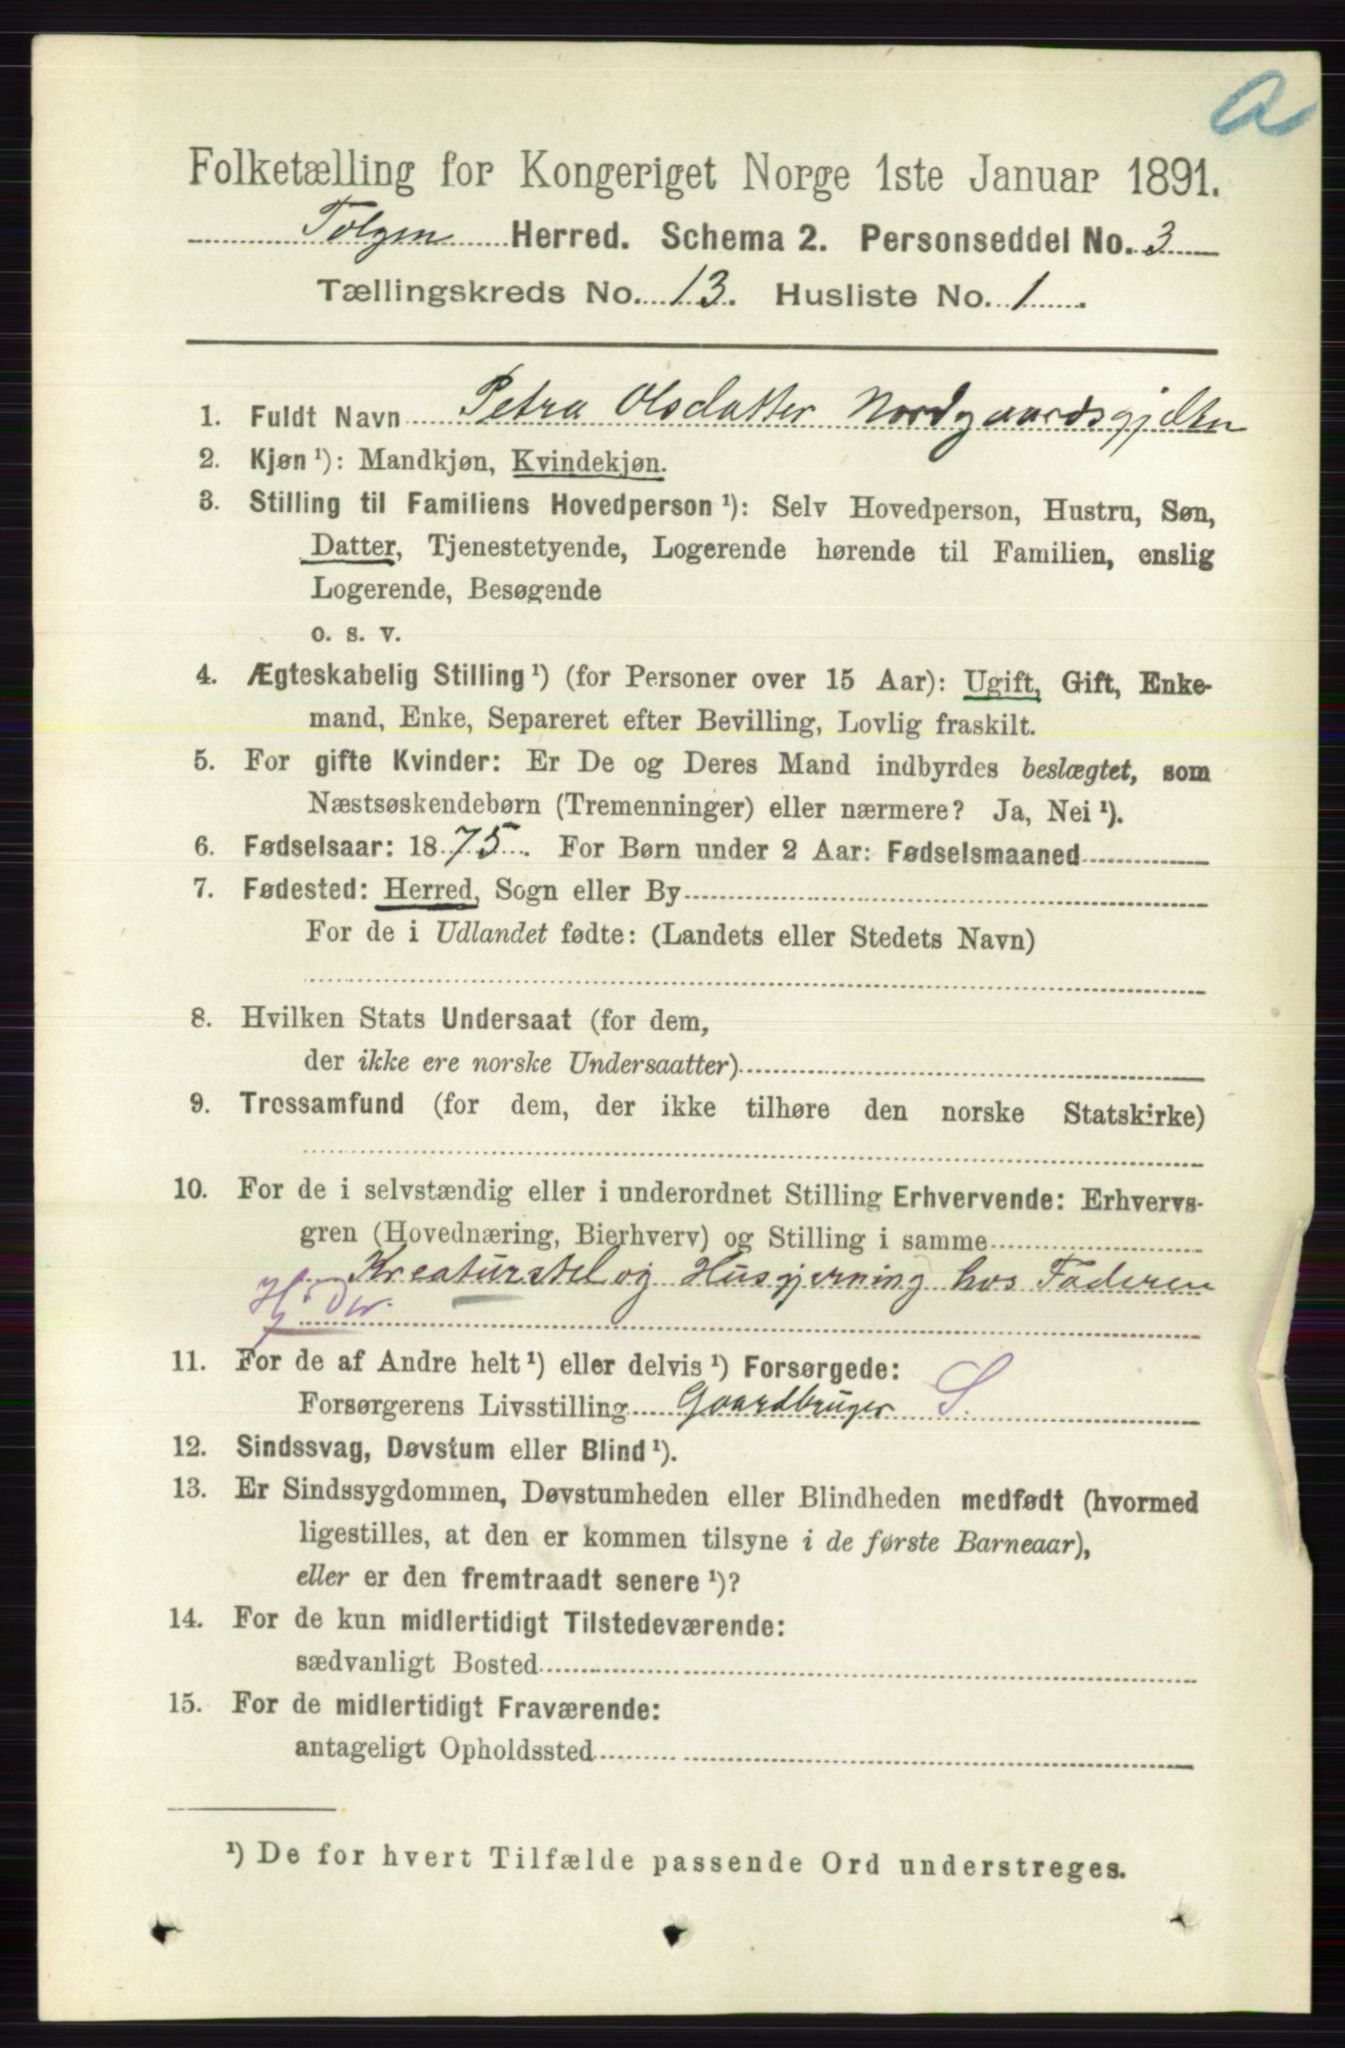 a
Folketælling for Kongeriget Norge 1ste Januar 1891.
Tolgen Herred. Schema 2. Personseddel No. 3
Tællingskreds No. 13. Husliste No. 1.
1. Fuldt Navn Petra Olsdatter Nordgaardsgjelten
2. Kjøn ¹): Mandkjøn, Kvindekjøn.
3. Stilling til Familiens Hovedperson ¹): Selv Hovedperson, Hustru, Søn,
Datter, Tjenestetyende, Logerende hørende til Familien, enslig
Logerende, Besøgende
o. s. v.
4. Ægteskabelig Stilling ¹) (for Personer over 15 Aar): Ugift, Gift, Enke-
mand, Enke, Separeret efter Bevilling, Lovlig fraskilt.
5. For gifte Kvinder: Er De og Deres Mand indbyrdes beslægtet, som
Næstsøskendebørn (Tremenninger) eller nærmere? Ja, Nei ¹).
6. Fødselsaar: 1875. For Børn under 2 Aar: Fødselsmaaned
7. Fødested: Herred, Sogn eller By
For de i Udlandet fødte: (Landets eller Stedets Navn)
8. Hvilken Stats Undersaat (for dem,
der ikke ere norske Undersaatter)
9. Trossamfund (for dem, der ikke tilhøre den norske Statskirke)
10. For de i selvstændig eller i underordnet Stilling Erhvervende: Erhvervs-
gren (Hovednæring, Bierhverv) og Stilling i samme
Kreaturstel og Husgjerning hos Faderen
11. For de af Andre helt ¹) eller delvis ¹) Forsørgede:
Forsørgerens Livsstilling Gaardbruger S.
12. Sindssvag, Døvstum eller Blind ¹).
13. Er Sindssygdommen, Døvstumheden eller Blindheden medfødt (hvormed
ligestilles, at den er kommen tilsyne i de første Barneaar),
eller er den fremtraadt senere ¹)?
14. For de kun midlertidigt Tilstedeværende:
sædvanligt Bosted
15. For de midlertidigt Fraværende:
antageligt Opholdssted
¹) De for hvert Tilfælde passende Ord understreges.